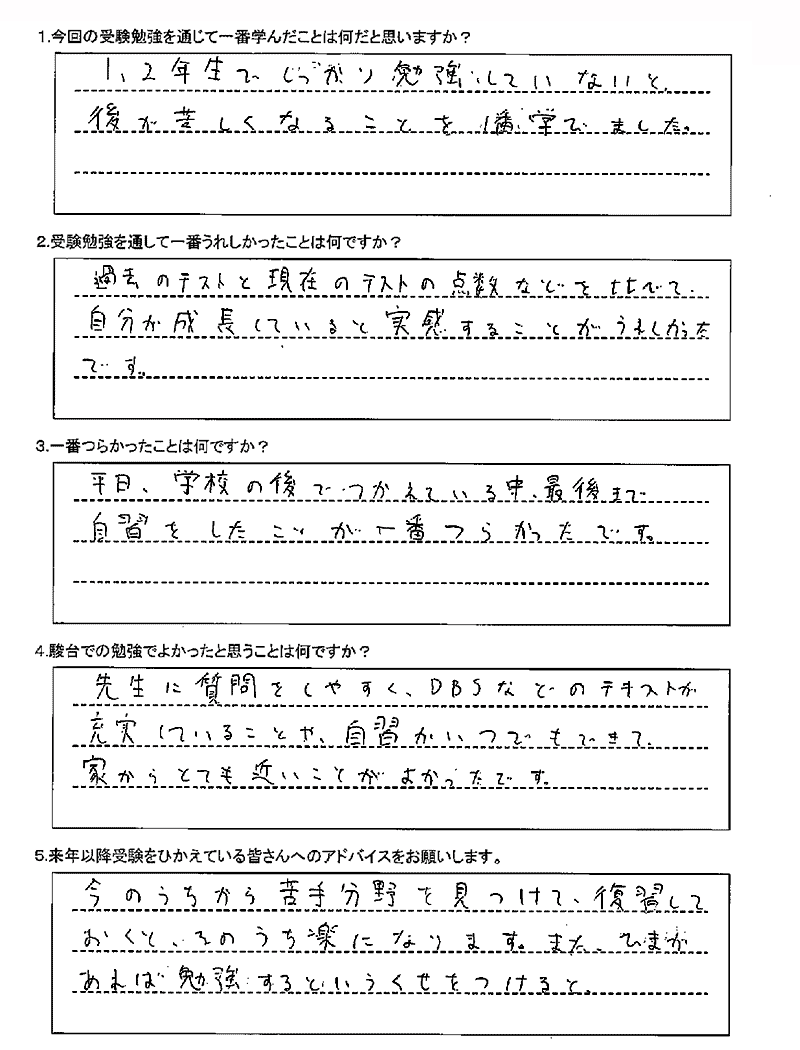 1.今回の受験勉強を通じて一番学んだことは何だと思いますか？
1、2年生でしっかり勉強していないと、
後が苦しくなることを1番学びました。
2.受験勉強を通して一番うれしかったことは何ですか？
過去のテストと現在のテストの点数などを比べて、
自分が成長していると実感することがうれしかった
です。
3.一番つらかったことは何ですか？
平日、学校の後でつかえている中、最後まで
自習をしたことが一番つらかったです。
4.駿台での勉強でよかったと思うことは何ですか？
先生に質問をしやすく、DBSなどのテキストが
充実していることや、自習がいつでもできて、
家からとても近いことがよかったです。
5.来年以降受験をひかえている皆さんへのアドバイスをお願いします。
今のうちから苦手分野を見つけて、復習して
おくと、そのうち楽になります。また、ひまが
あれば勉強するというくせをつけると。